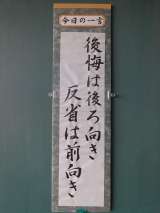 今日の一言
後悔は後ろ向き
反省は前向き